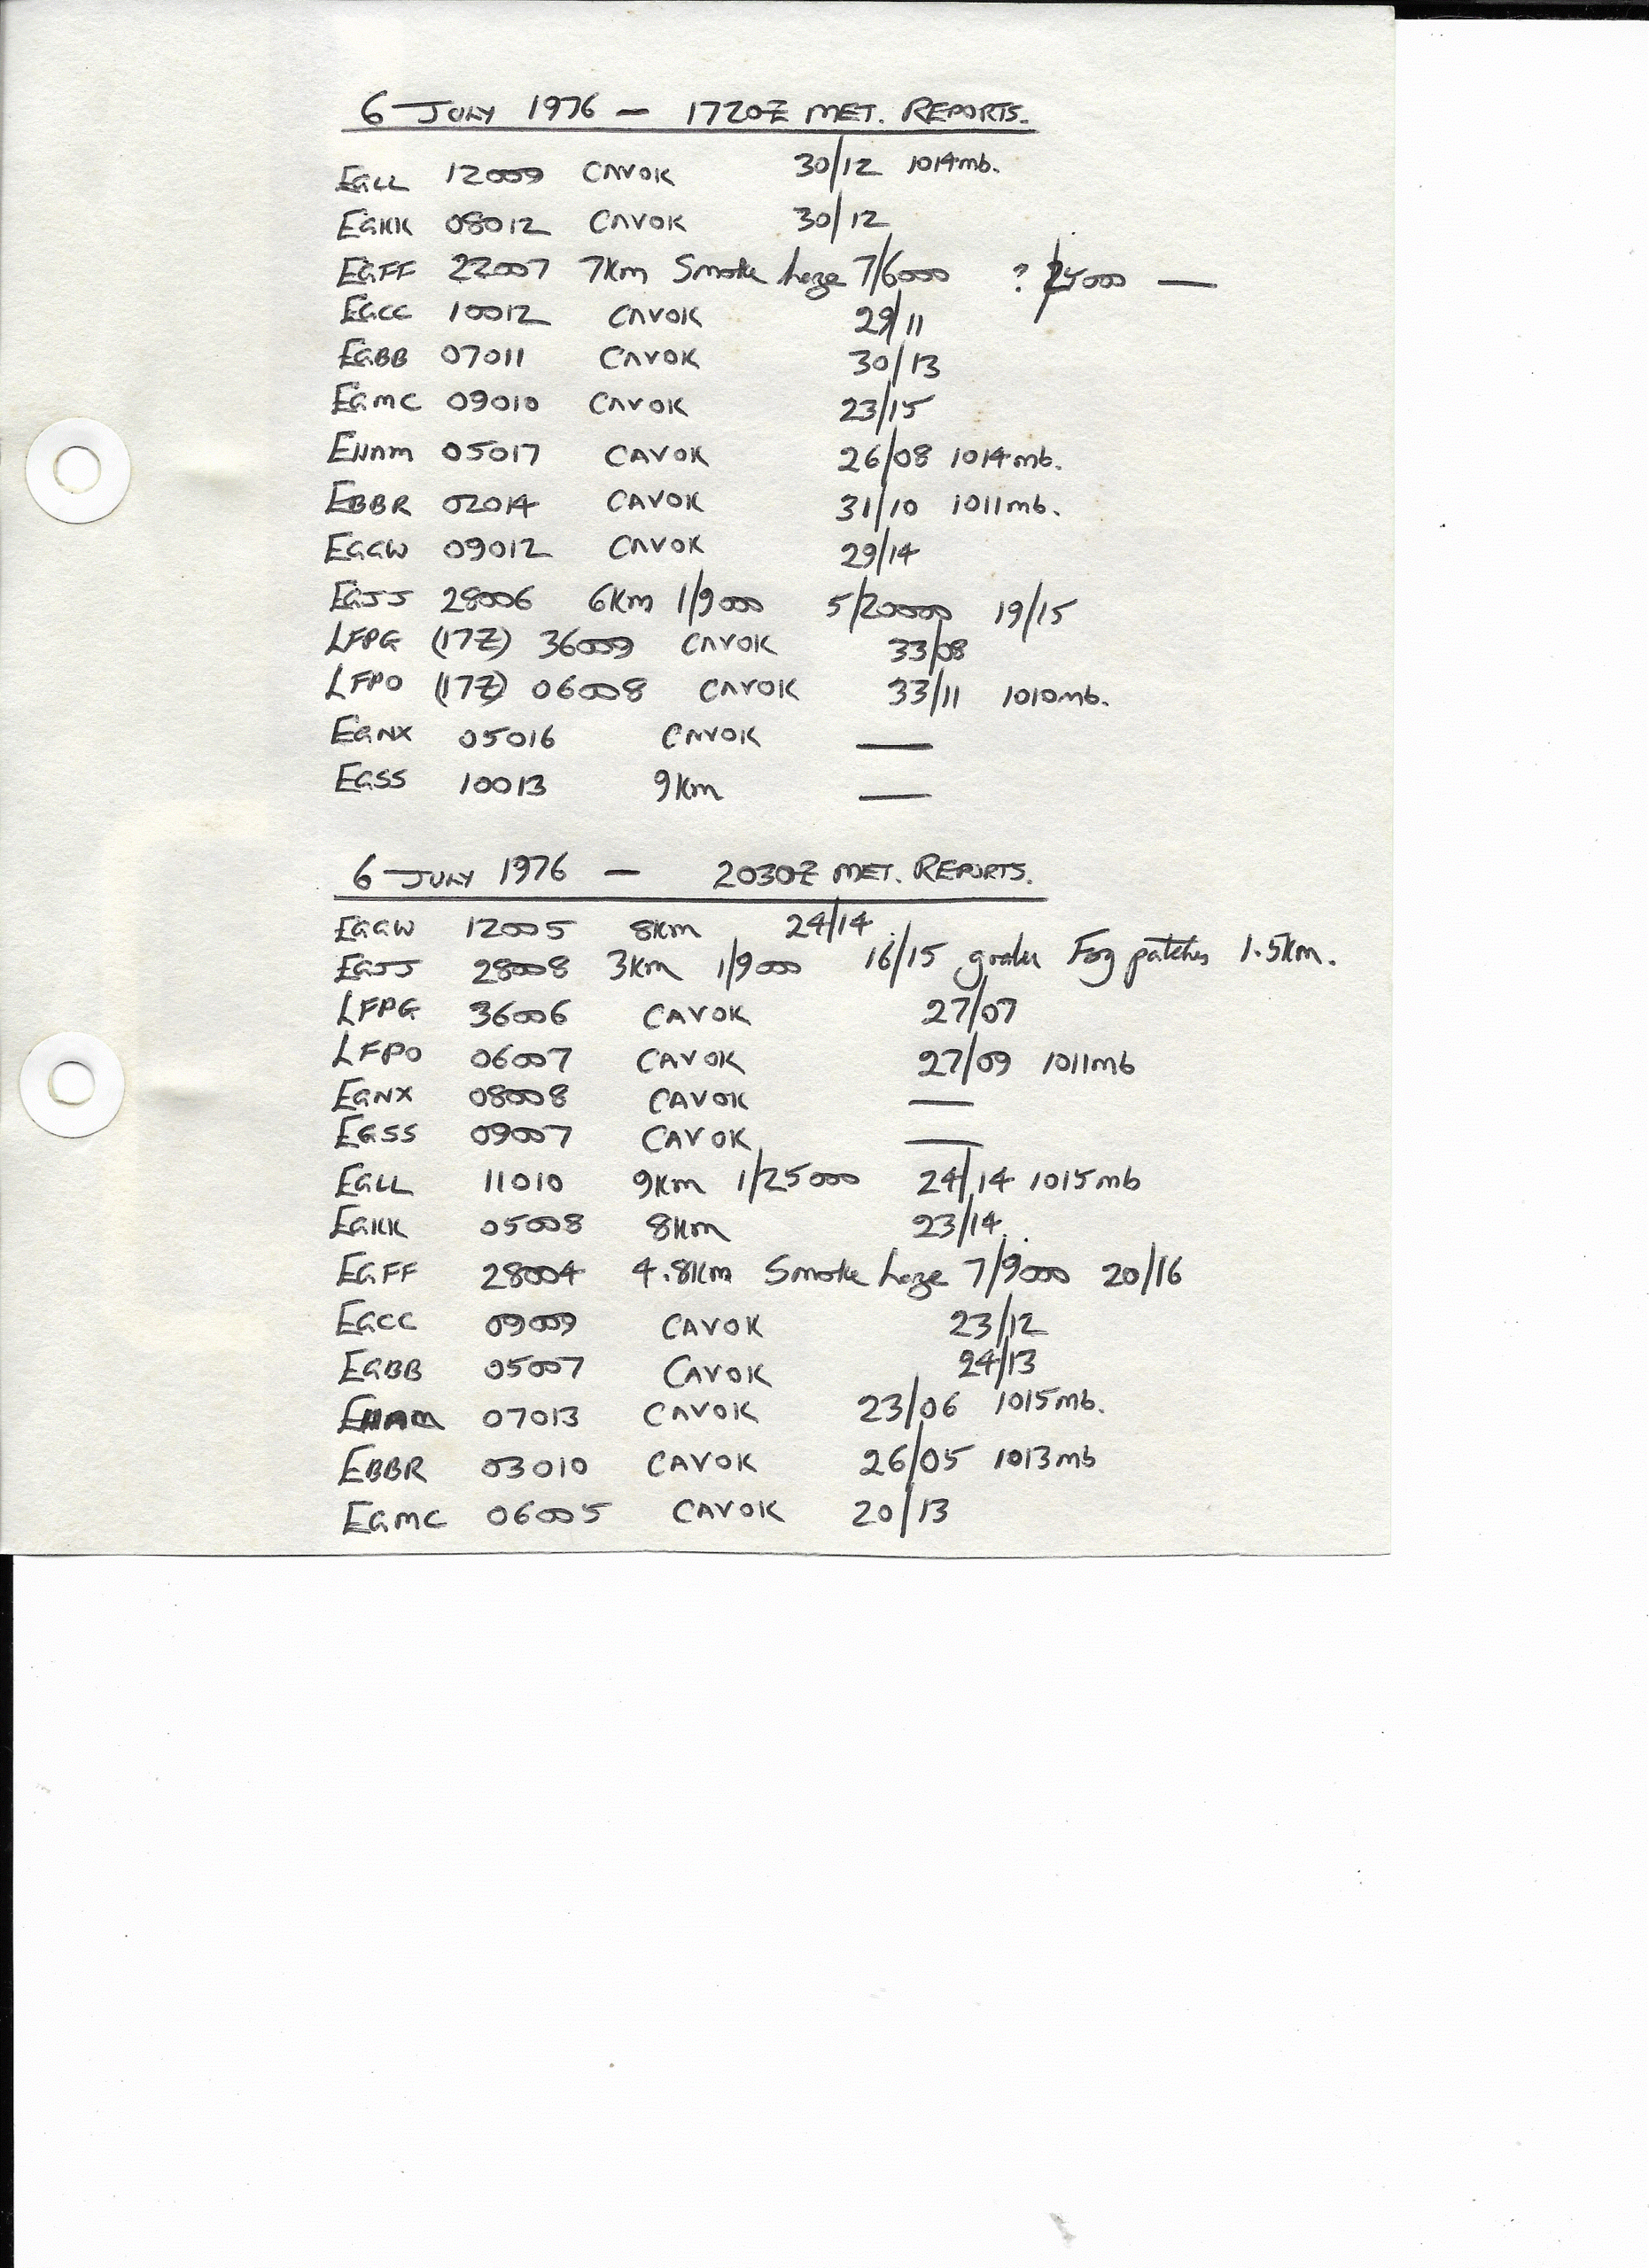 6 JULY 1976 — 1720Z MET. REPORTS.
EGLL 12009 CAVOK 30/12 1014mb.
EGKK 08012 CAVOK 30/12
EGFF 22007 7Km Smoke haze 7/6000 ? 25000 —
EGCC 10012 CAVOK 29/11
EGBB 07011 CAVOK 30/13
EGMC 09010 CAVOK 23/15
EHAM 05017 CAVOK 26/08 1014mb.
EBBR 02014 CAVOK 31/10 1011mb.
EGGW 09012 CAVOK 29/14
EGJJ 28006 6Km 1/9000 5/20000 19/15
LFPG (17Z) 36009 CAVOK 33/08
LFPO (17Z) 06008 CAVOK 33/11 1010mb.
EGNX 05016 CAVOK —
EGSS 10013 9Km —
6 JULY 1976 — 2030Z MET. REPORTS.
EGGW 12005 8Km 24/14
EGJJ 28008 3Km 1/9000 16/15 gradu Fog patches 1.5Km.
LFPG 36006 CAVOK 27/07
LFPO 06007 CAVOK 27/09 1011mb
EGNX 08008 CAVOK —
EGSS 09007 CAVOK —
EGLL 11010 9Km 1/25000 24/14 1015mb
EGKK 05008 8Km 23/14
EGFF 28004 4.8Km Smoke haze 7/9000 20/16
EGCC 09009 CAVOK 23/12
EGBB 05007 CAVOK 24/13
EHAM 07013 CAVOK 23/06 1015mb.
EBBR 03010 CAVOK 26/05 1013mb
EGMC 06005 CAVOK 20/13